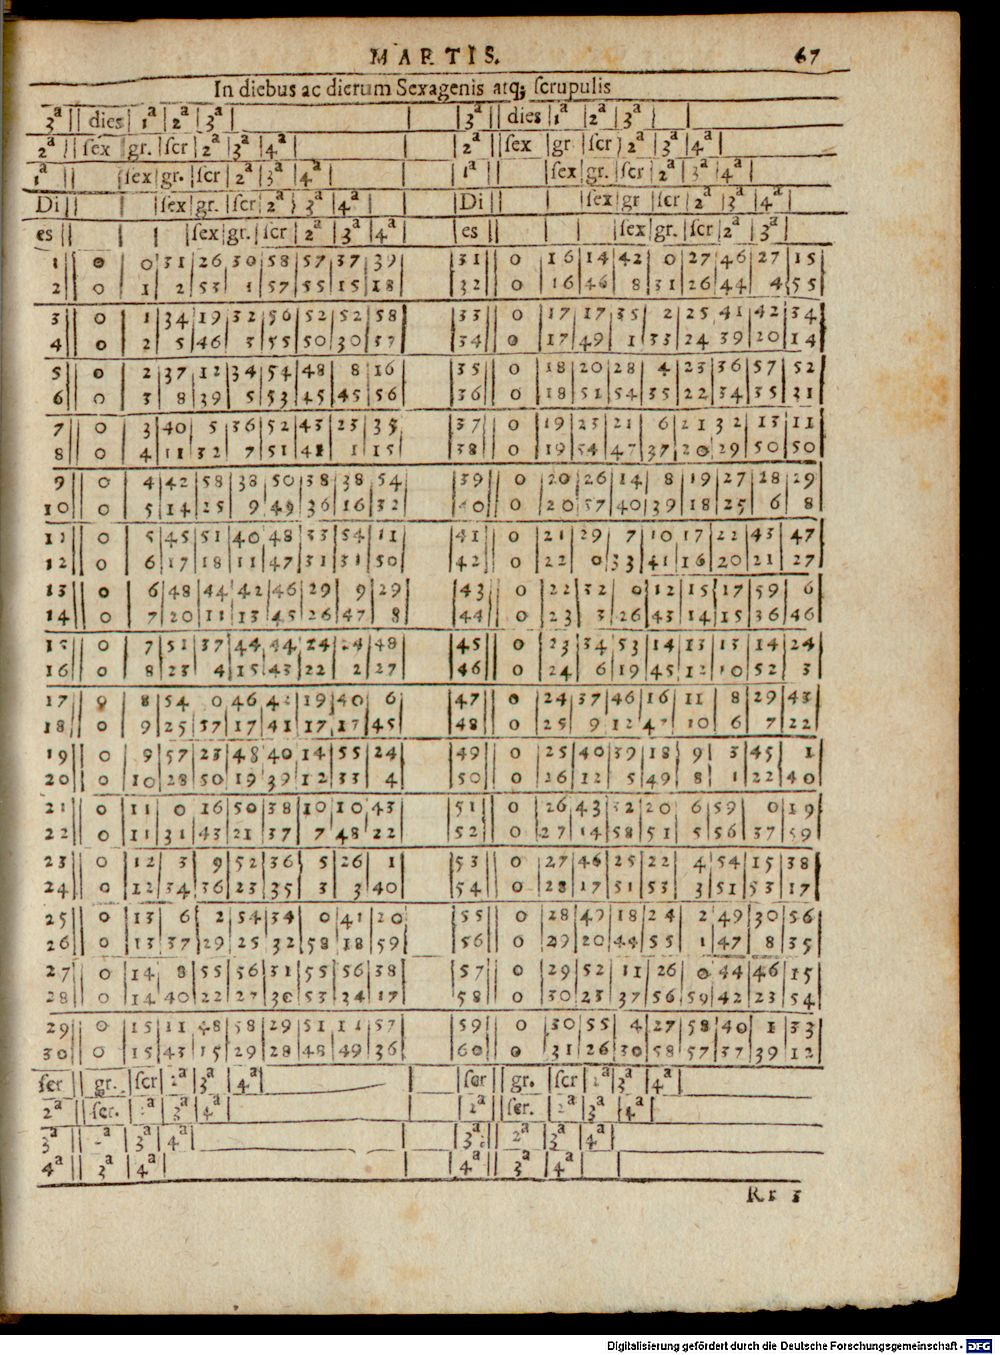 MARTIS. 67
In diebus ac dierum Sexagenis atq; scrupulis
3ª dies 1ª 2ª 3ª 3ª dies 1ª 2ª 3ª
2ª sex gr. scr 2ª 3ª 4ª 2ª sex gr scr 2ª 3ª 4ª
1ª sex gr. scr 2ª 3ª 4ª 1ª sex gr. scr 2ª 3ª 4ª
Di sex gr. scr 2ª 3ª 4ª Di sex gr scr 2ª 3ª 4ª
es sex gr. scr 2ª 3ª 4ª es sex gr. scr 2ª 3ª
1 0 0 31 26 30 58 57 37 39 31 0 16 14 42 0 27 46 27 15
2 0 1 2 53 1 57 55 15 18 32 0 16 46 8 31 26 44 4 55
3 0 1 34 19 32 56 52 52 58 33 0 17 17 35 2 25 41 42 34
4 0 2 5 46 3 55 50 30 37 34 0 17 49 1 33 24 39 20 14
5 0 2 37 12 34 54 48 8 16 35 0 18 20 28 4 23 36 57 52
6 0 3 8 39 5 53 45 45 56 36 0 18 51 54 35 22 34 35 31
7 0 3 40 5 36 52 43 23 35 37 0 19 23 21 6 21 32 13 11
8 0 4 11 32 7 51 41 1 15 38 0 19 54 47 37 20 29 50 50
9 0 4 42 58 38 50 38 38 54 39 0 20 26 14 8 19 27 28 29
10 0 5 14 25 9 49 36 16 32 40 0 20 57 40 39 18 25 6 8
11 0 5 45 51 40 48 33 54 11 41 0 21 29 7 10 17 22 43 47
12 0 6 17 18 11 47 31 31 50 42 0 22 0 33 41 16 20 21 27
13 0 6 48 44 42 46 29 9 29 43 0 22 32 0 12 15 17 59 6
14 0 7 20 11 13 45 26 47 8 44 0 23 3 26 43 14 15 36 46
15 0 7 51 37 44 44 24 24 48 45 0 23 34 53 14 13 13 14 24
16 0 8 23 4 15 43 22 2 27 46 0 24 6 19 45 12 10 52 3
17 0 8 54 0 46 42 19 40 6 47 0 24 37 46 16 11 8 29 43
18 0 9 25 57 17 41 17 17 45 48 0 25 9 12 47 10 6 7 22
19 0 9 57 23 48 40 14 55 24 49 0 25 40 39 18 9 3 45 1
20 0 10 28 50 19 39 12 33 4 50 0 26 12 5 49 8 1 22 40
21 0 11 0 16 50 38 10 10 43 51 0 26 43 32 20 6 59 0 19
22 0 11 31 43 21 37 7 48 22 52 0 27 14 58 51 5 56 37 59
23 0 12 3 9 52 36 5 26 1 53 0 27 46 25 22 4 54 15 38
24 0 12 34 36 23 35 3 3 40 54 0 28 17 51 53 3 51 53 17
25 0 13 6 2 54 34 0 41 20 55 0 28 49 18 24 2 49 30 56
26 0 13 37 29 25 32 58 18 59 56 0 29 20 44 55 1 47 8 35
27 0 14 8 55 56 31 55 56 38 57 0 29 52 11 26 0 44 46 15
28 0 14 40 22 27 30 53 34 17 58 0 30 23 37 56 59 42 23 54
29 0 15 11 48 58 29 51 11 57 59 0 30 55 4 27 58 40 1 33
30 0 15 43 15 29 28 48 49 36 60 0 31 26 30 58 57 37 39 12
scr gr. scr 2ª 3ª 4ª scr gr. scr 2ª 3ª 4ª
2ª scr. 2ª 3ª 4ª 2ª scr. 2ª 3ª 4ª
3ª 2ª 3ª 4ª 3ª 2ª 3ª 4ª
4ª 3ª 4ª 4ª 3ª 4ª
Rr 3
Digitalisierung gefördert durch die Deutsche Forschungsgemeinschaft - DFG